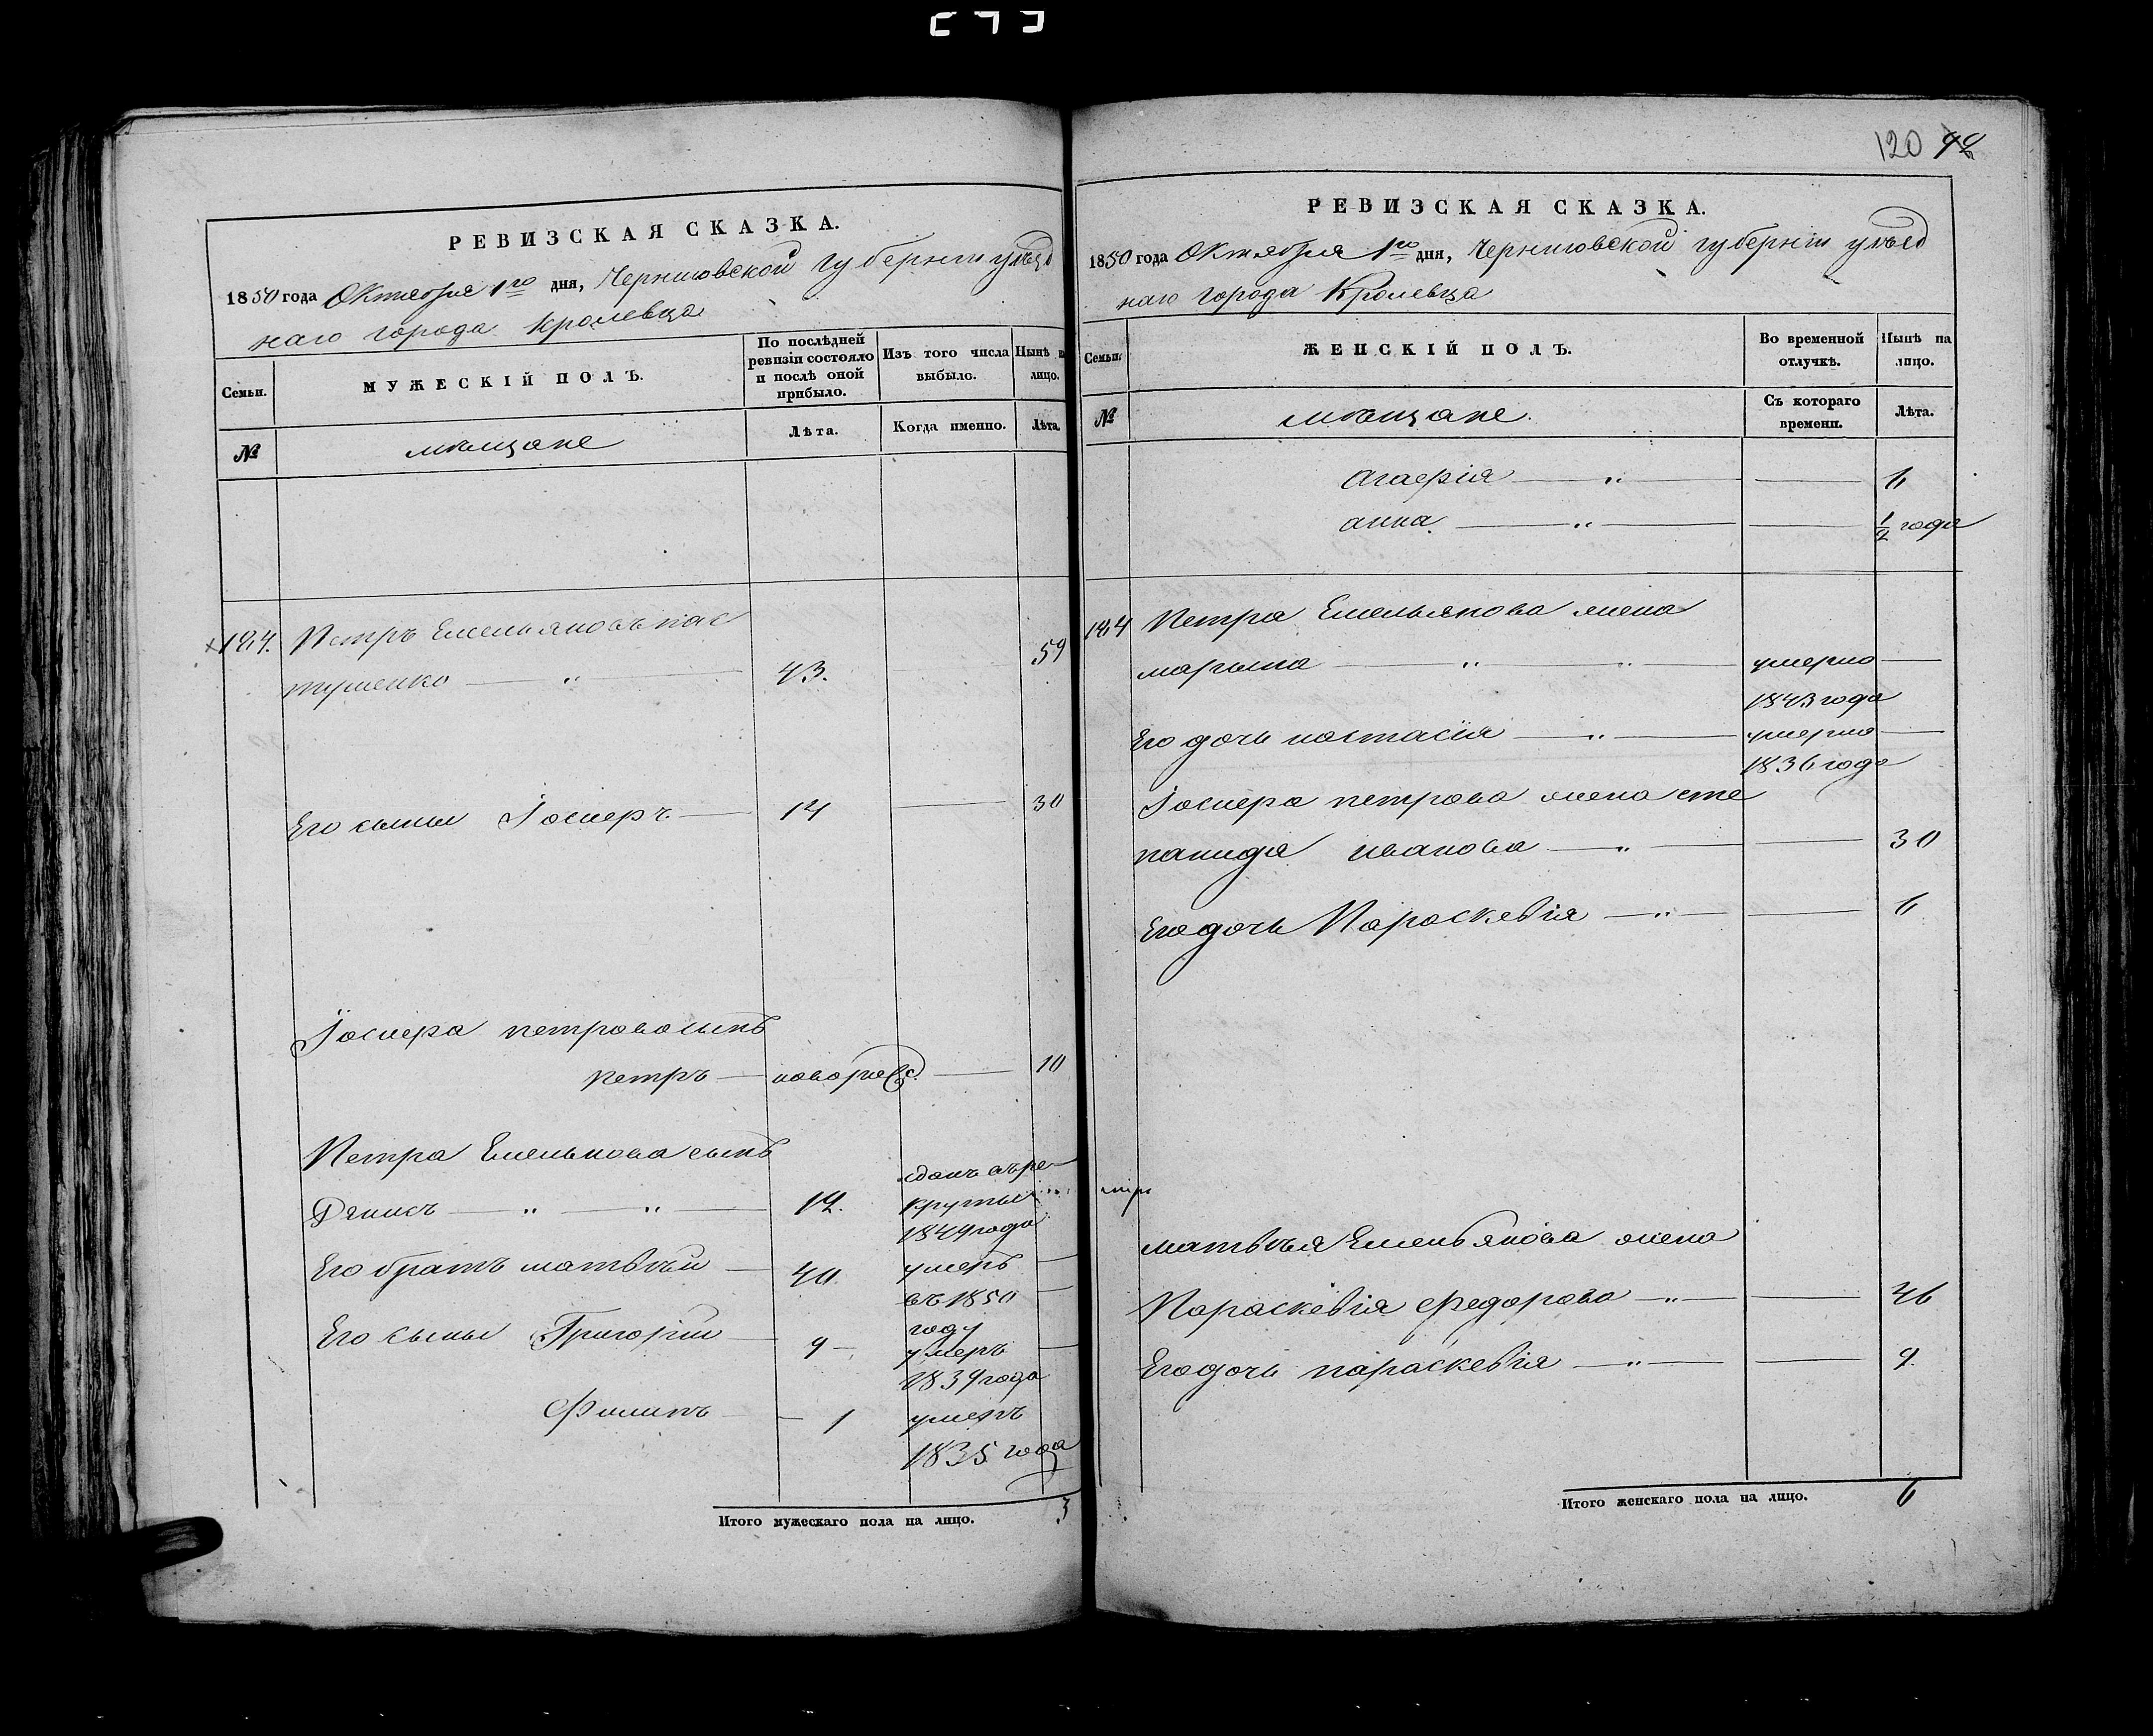 120 92
РЕВИЗСКАЯ СКАЗКА.
1850 года Октября 1го дня, Черниговской губернии уѣзд
наго города Кролевца
Семьи.
МУЖЕСКІЙ ПОЛЪ.
По послѣдней
ревизіи состояло
и послѣ оной
прибыло.
Изъ того числа
выбыло.
Нынѣ н
лицо.
№
мѣщане
Лѣта.
Когда именно.
Лѣта.
184. Петръ Емельяновъ пас
тушенко — „ — 43. — 59
Его сыны Іосифъ — 14 — 30
Іосифа петрова сынъ
петръ — новорожд. — 10
Петра Емельянова сынъ
Денисъ — „ — „ — 12. сданъ въ ре
круты
1849 года
Его братъ матвѣй — 40 умеръ
въ 1850
году
Его сыны Григорій — 9 — умеръ
1839 года
Филипъ — 1 умеръ
1835 года
Итого мужескаго пола на лицо. 3
РЕВИЗСКАЯ СКАЗКА.
1850 года Октября 1го дня, Черниговской губерніи уѣзд
наго города Кролевца
Семьи.
ЖЕНСКІЙ ПОЛЪ.
Во временной
отлучкѣ.
Нынѣ на
лицо.
№
мѣщане.
Съ котораго
времени.
Лѣта.
Агафія — „ — 6
анна — „ — 1/2 года
184 Петра Емельянова жена
марьяна — „ — „ — умерла —
1843 года
Его дочь настасія — „ — умерла —
1836 года
Іосифа петрова жена сте
панида иванова — „ — 30
Его дочь Параскевія — „ — 6
матвѣя Емельянова жена
Параскевія Федорова — „ — 46
Его дочь параскевія — „ — 9.
Итого женскаго пола на лицо. 6